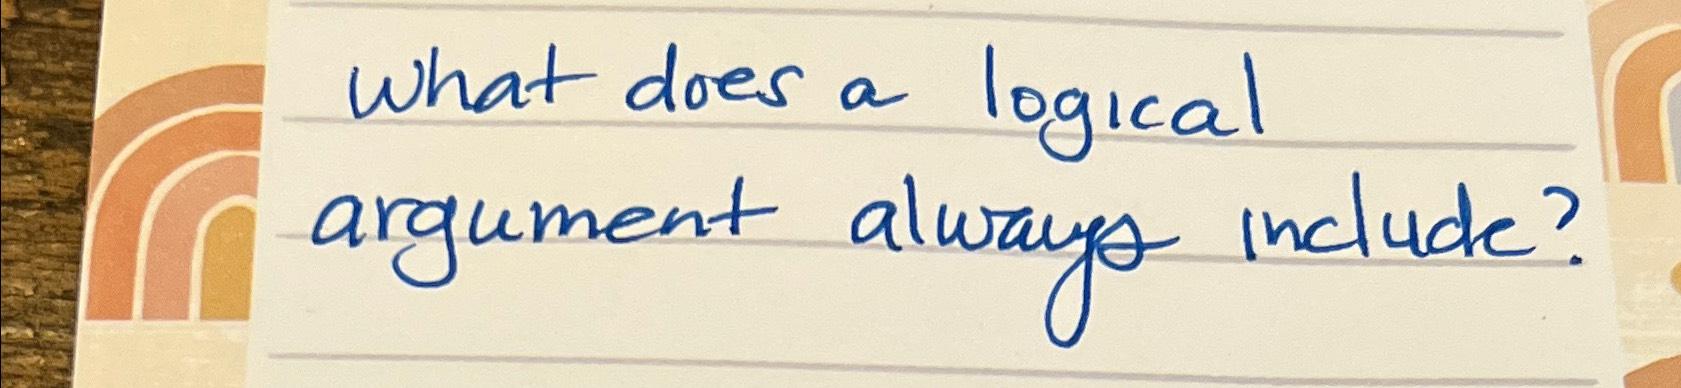 what does a logical
argument always include?